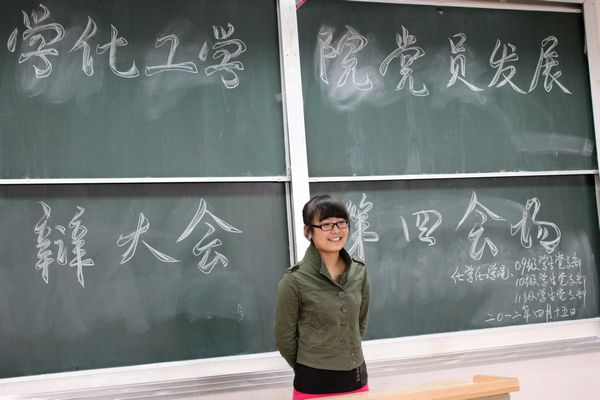 学化工学院党员发展
辩大会 第四会场
化学化工学院 09级学生党支部
10级学生党支部
11级学生党支部
二〇一二年四月十五日